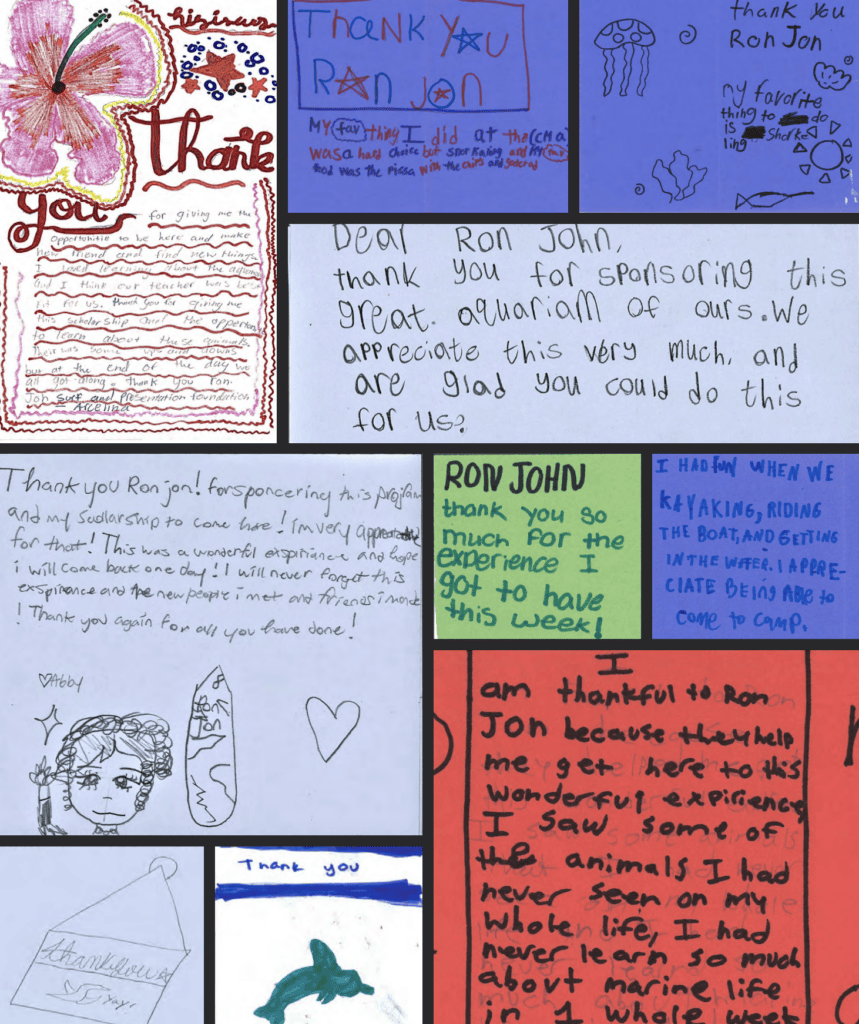 Thank
you
for giving me the
opportunitie to be here and make
new friend and find new things
I loved learning about the
and I think our teacher was best
fit for us. thank you for giving me
this scholarship and the
to learn about these animals
Their was some ups and downs
but at the end of the day we
all got along. thank you ron
Jon surf and foundation
Thank You
Ron Jon
My fav thing I did at the CMA
was a hard choice but snorkaling and my fav
food was the pissa with the and
thank you
Ron Jon
my favorite
thing to do
is
ling
Dear Ron John,
thank you for sponsoring this
great. aquariam of ours. We
appreciate this very much, and
are glad you could do this
for us.
Thank you Ron jon! for sponcering this program
and my scollarship to come here! im very
for that! This was a wonderful exspiriance and hope
i will come back one day! I will never forget this
exspirance and the new people i met and friends i made
! Thank you again for all you have done!
♡Abby
RON JOHN
thank you so
much for the
experience I
got to have
this week!
I HAD FUN WHEN WE
KAYAKING, RIDING
THE BOAT, AND GETTING
IN THE WATER. I APPRE-
CIATE BEING ABLE to
come to camp.
I
am thankful to Ron
Jon because they help
me get here to this
wonderful expirience,
I saw some of
the animals I had
never seen on my
whole life, I had
never learn so much
about marine life
in 1 whole week
Thank you